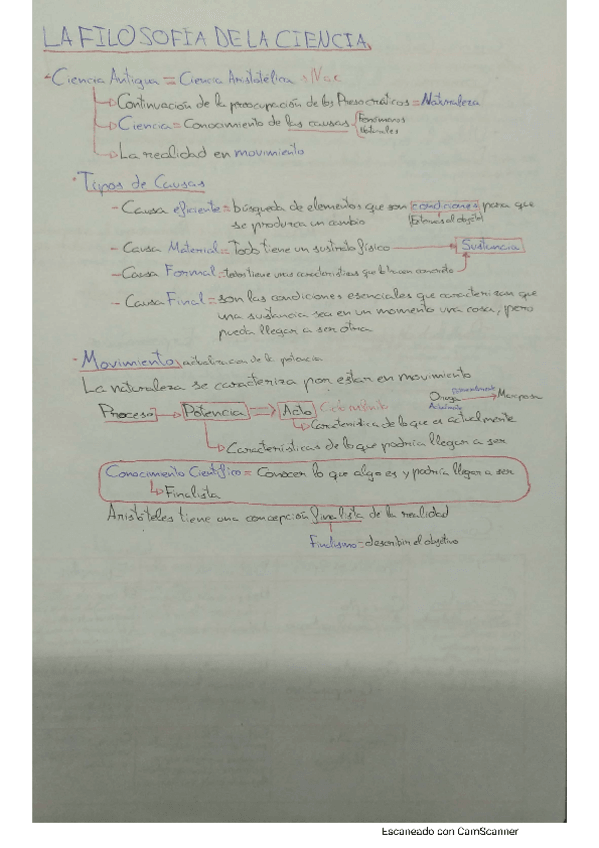 LA FILOSOFIA DE LA CIENCIA.
Ciencia Antigua = Ciencia Aristotélica
Continuación de la preocupación de los Presocráticos = Naturaleza
Ciencia = Conocimiento de las causas Fenómenos
Naturales
La realidad en movimiento
Tipos de Causas
- Causa eficiente = búsqueda de elementos que son condiciones para que
se produzca un cambio
- Causa Material = Todo tiene un sustrato físico Sustancia
- Causa Formal = todos tiene unas características que lo hacen concreto
- Causa Final = son las condiciones esenciales que caracterizan que
una sustancia sea en un momento una cosa, pero
pueda llegar a ser otra
Movimiento: actualización de la potencia
La naturaleza se caracteriza por estar en movimiento
potencialmente
Proceso Potencia Acto Oruga Mariposa
Actualmente
Característica de lo que es actualmente
Características de lo que podría llegar a ser
Conocimiento Científico = Conocer lo que algo es y podría llegar a ser
Finalista
Aristóteles tiene una concepción finalista de la realidad
Finalismo = describir el objetivo
Escaneado con CamScanner